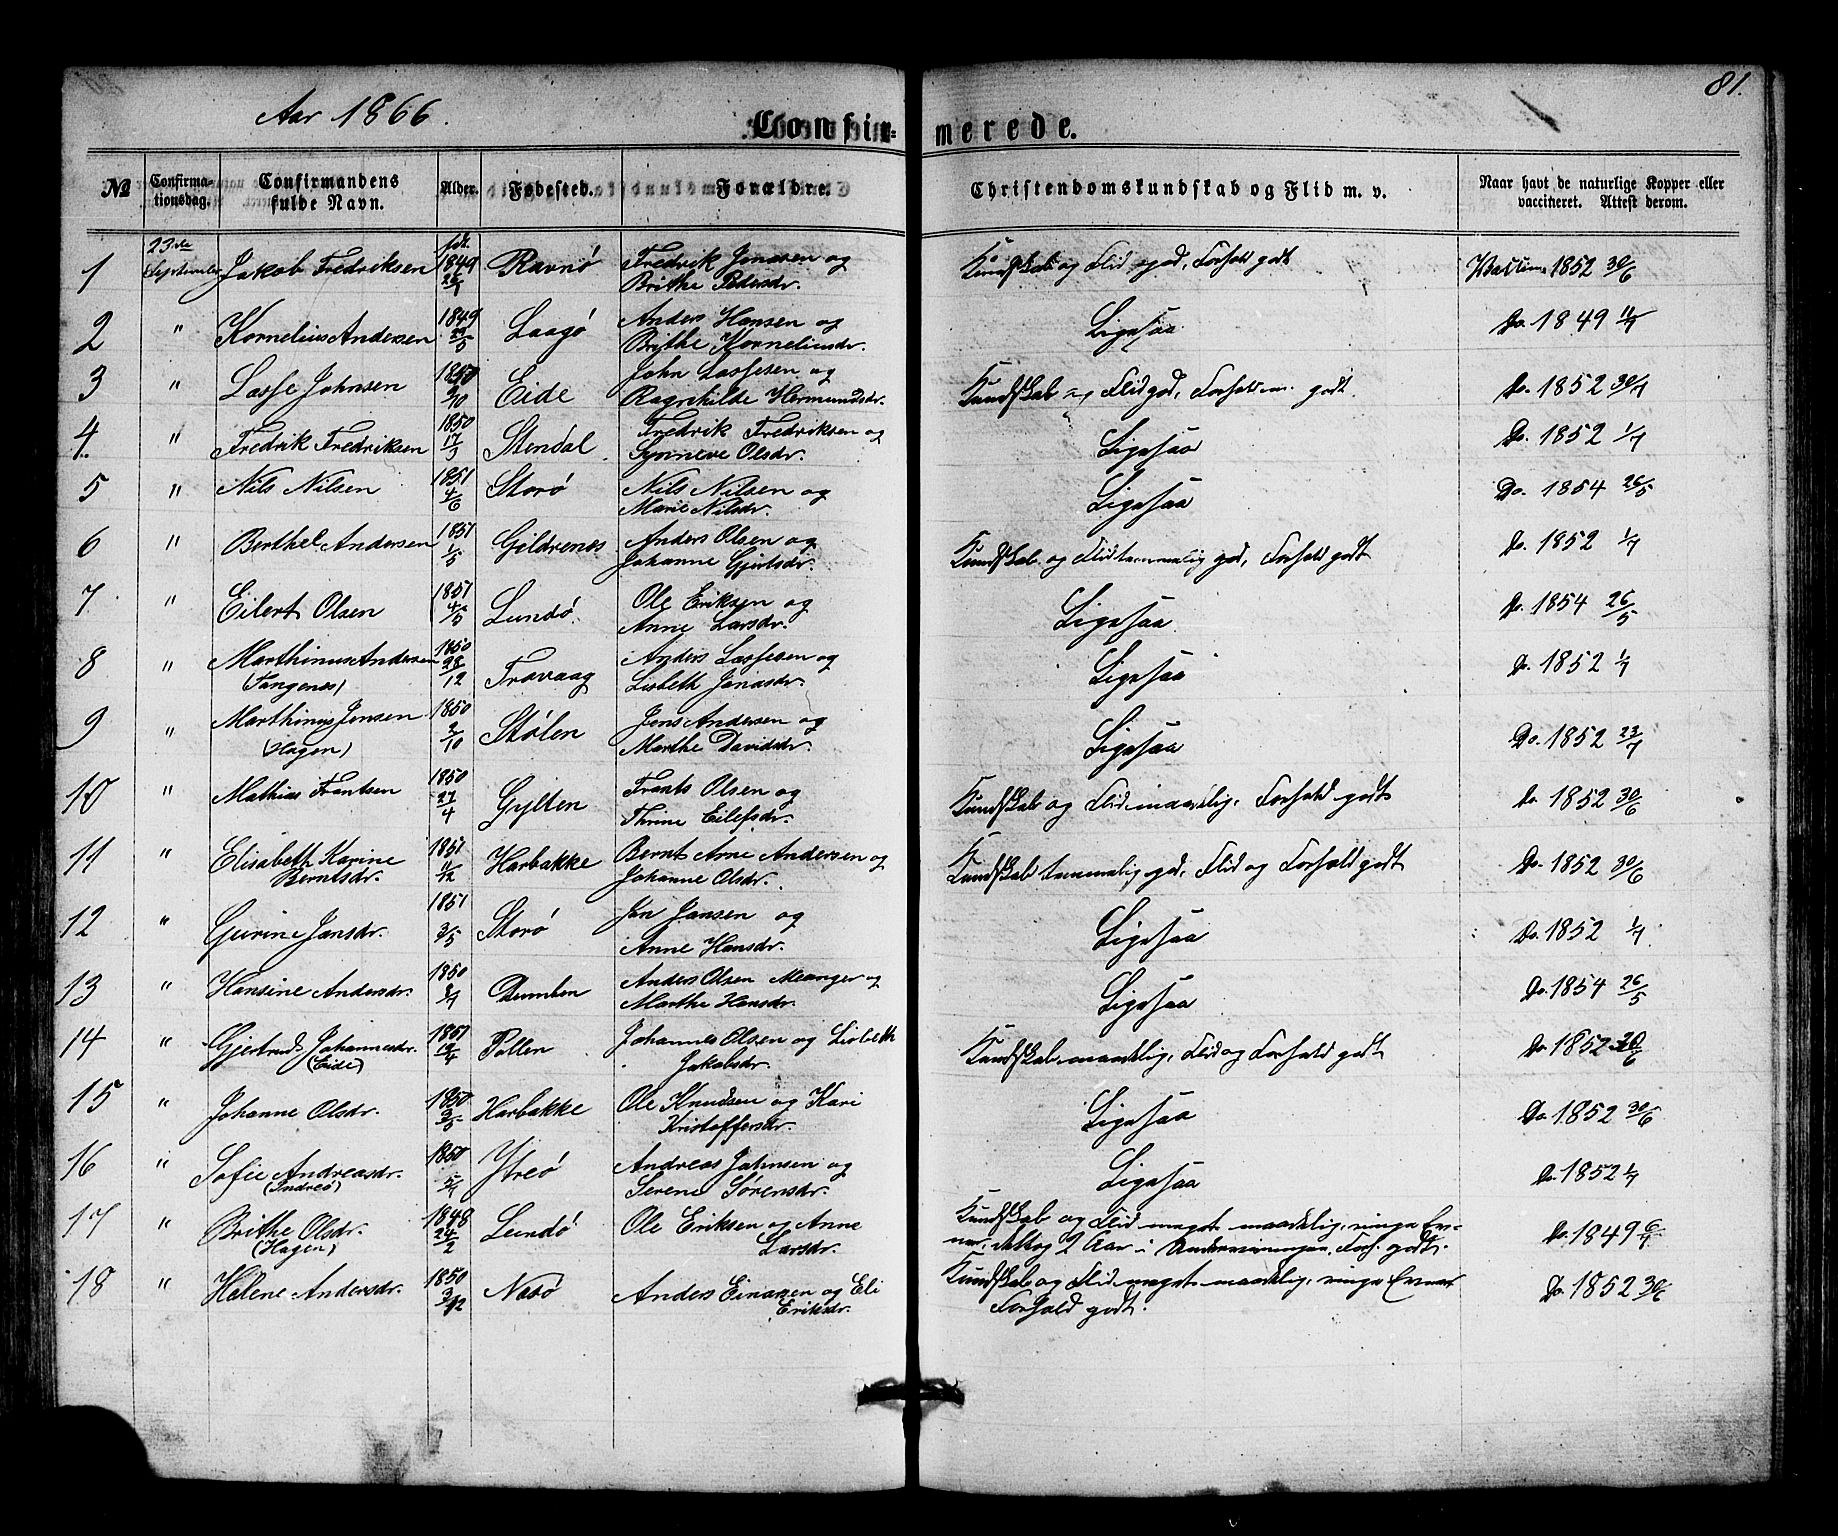 81.
Aar 1866.
Confir- merede.
№ Confirma-tionsdag. Confirmandens fulde Navn. Alder. Fødested. Forældre. Christendomskundskab og Flid m. v. Naar havt de naturlige Kopper eller vaccineret. Attest derom.
1 23de September Jakob Fredriksen fdt. 1849 Ravnø Fredrik Jonasen og Brithe Pedersdr. Kundskab og Flid god, Forhold godt 1852 30/6
2 " Kornelius Andersen 1849 29/5 Laagø Anders Hansen og Brithe Korneliusdr. Ligesaa Do. 1849
3 " Lasse Johnsen 1850 Eide John Lassesen og Ragnhilde Hermundsdr. Kundskab og Flid god, Forhold godt. Do. 1852
4. " Fredrik Fredriksen 1850 17/3 Stendal Fredrik Fredriksen og Synneve Olsdr. Ligesaa Do. 1852 1/7
5 " Nils Nilsen 1851 4/6 Storø Nils Nilsen og Marie Nilsdr. Ligesaa Do. 1854 26/5
6 " Berthel Andersen 1851 1/5 Gildrenes Anders Olsen og Johanne Gjertsdr. Kundskab og Flid temmelig god, Forhold godt Do. 1852 1/7
7 " Eilert Olsen 1851 4/5 Lundø. Ole Eriksen og Anne Larsdr. Ligesaa Do. 1854 26/5
8 " Marthinus Andersen (Tangenes) 1850 28/12 Trovaag Anders Lassesen og Lisbeth Jonasdr. Ligesaa Do. 1852 1/7
9 " Marthinus Jensen (Hagen) 1850 2/10 Stølen Jens Andersen og Marthe Davidsdr. Ligesaa Do. 1852 23/7
10 " Mathias Frantsen 1850 27/4 Gylten Frants Olsen og Thrine Eilefsdr. Kundskab og Flid maadelig, Forhold godt Do. 1852 30/6
11 " Elisabeth Karine Berntsdr. 1851 11/12 Harbakke Bernt Arne Andersen og Johanne Olsdr. Kundskab temmelig god, Flid og Forhold godt Do. 1852 30/6
12 " Gurine Jansdr. 1851 3/5 Storø Jan Jansen og Anne Hansdr. Ligesaa Do. 1852 1/7
13 " Hansine Andersdr. 1850 Anders Olsen Meanger og Marthe Hansdr. Ligesaa Do. 1854 26/5
14 " Gjertrud Johannesdr. (Eide) 1851 Pollen Johannes Olsen og Lisbeth Jakobsdr. Kundskab maadelig, Flid og Forhold godt Do. 1852 30/6
15 " Johanne Olsdr. 1850 3/5 Harbakke Ole Knudsen og Kari Kristoffersdr. Ligesaa Do. 1852 30/6
16 " Sofie Andreasdr. (Indreø) 1850 Ytreø Andreas Johnsen og Serene Sørensdr. Ligesaa Do. 1852 1/7
17 " Brithe Olsdr. (Hagen) 1848 24/2 Lundø Ole Eriksen og Anne Larsdr. Kundskab og Flid meget maadelig, ringe Evner, deltog 2 Aar i Undervisningen, Forh. godt. Do. 1849
18 " Helene Andersdr. 1850 3/12 Nesø Anders Einarsen og Eli Eriksdr. Kundskab og Flid meget maadelig, ringe Evner Forhold godt. Do. 1852 30/6